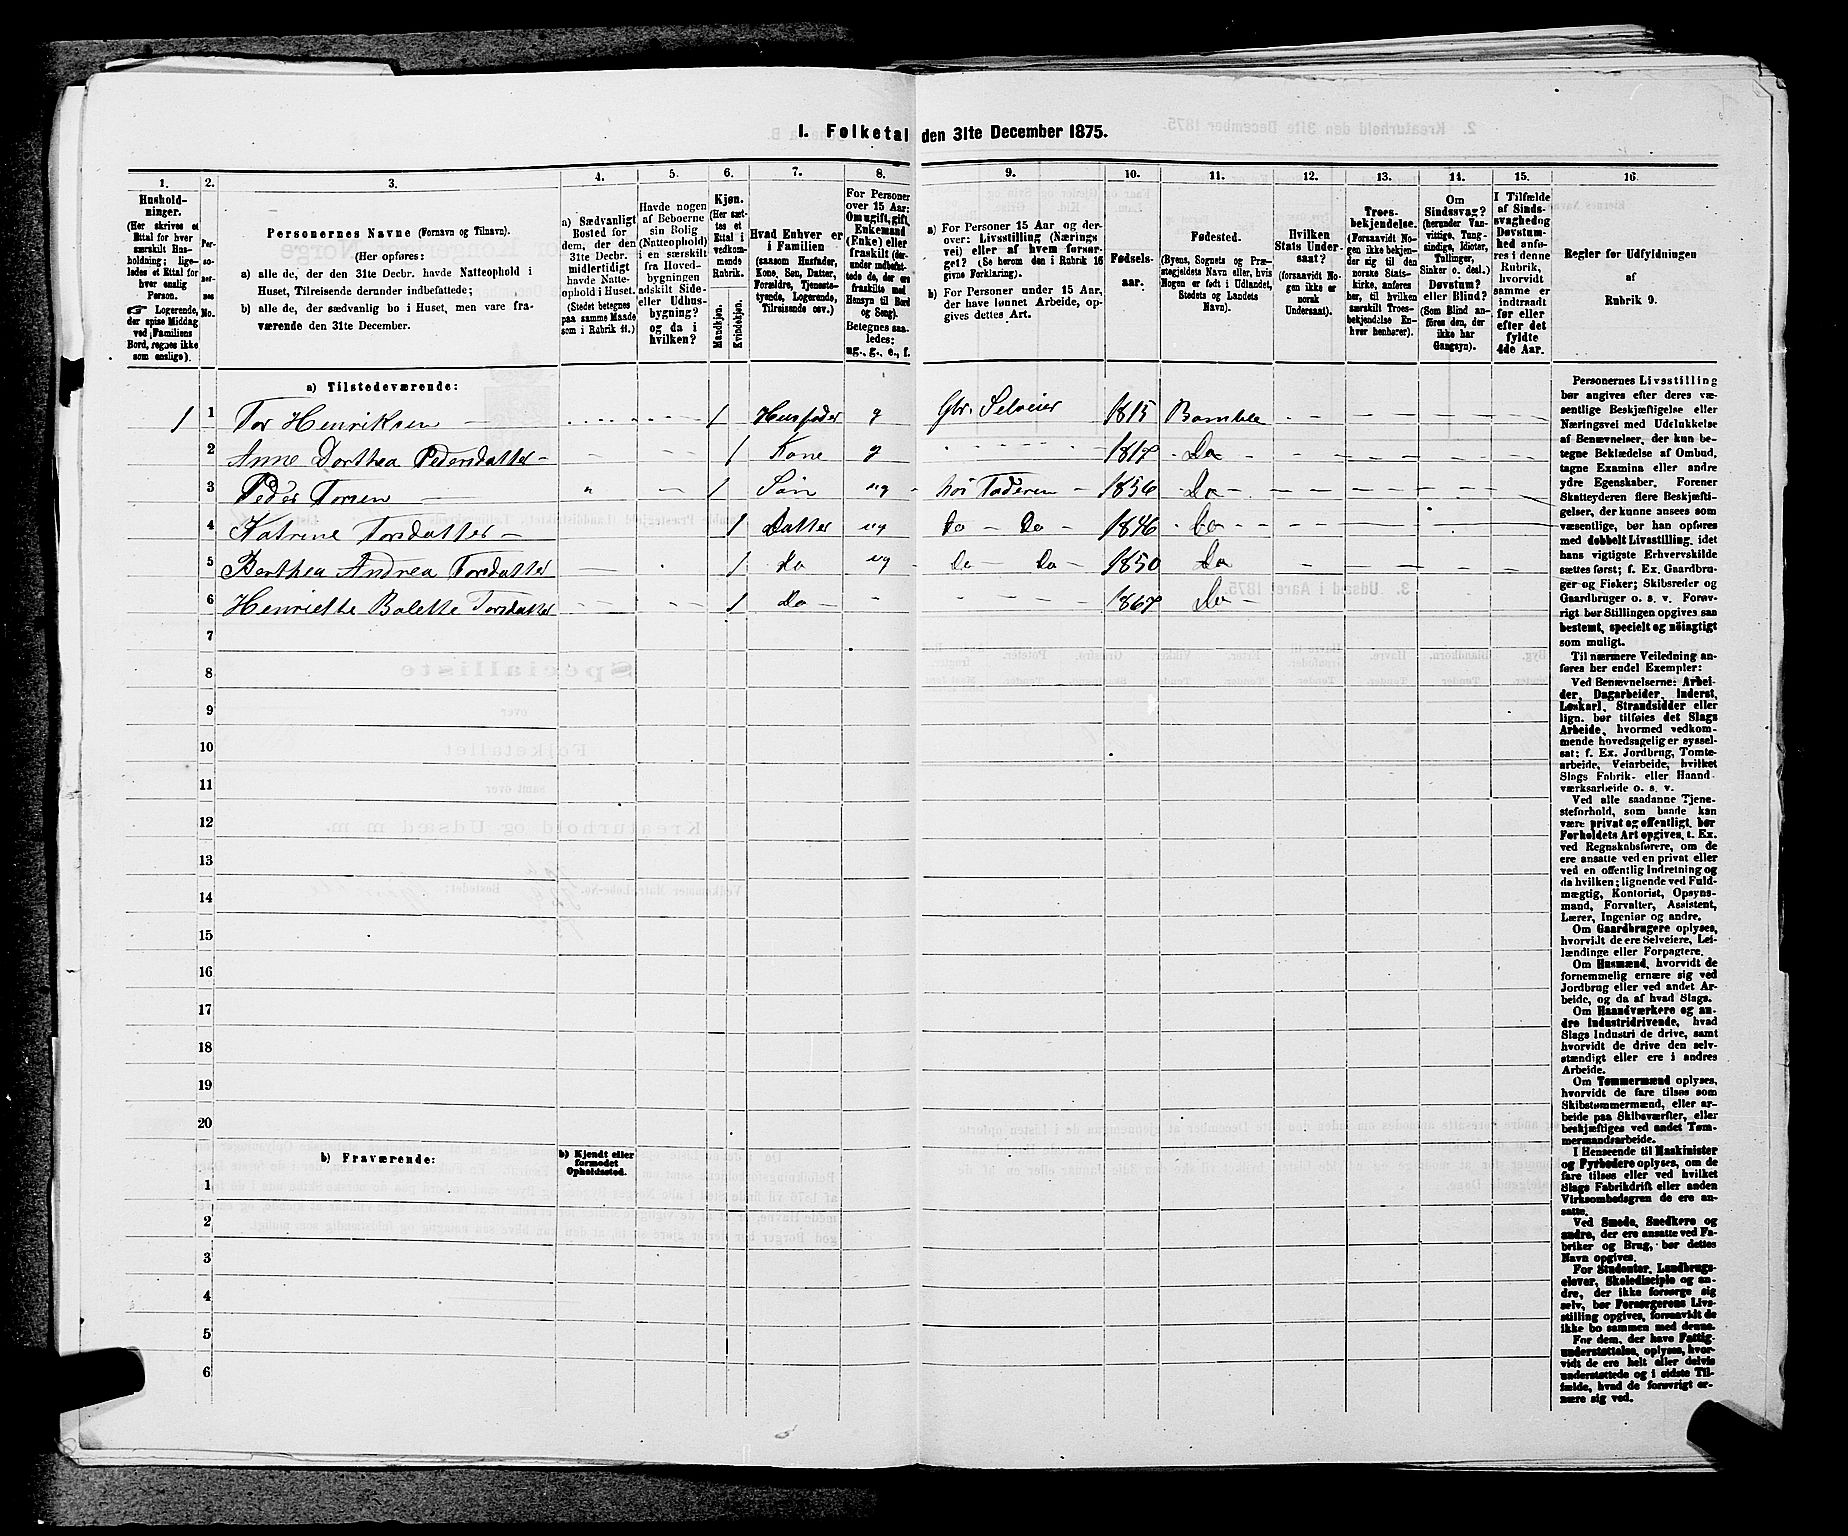 1. Folketal den 31te December 1875.
1. 2. 3. 4. 5. 6. 7. 8. 9. 10. 11. 12. 13. 14. 15. 16
Hushold-
ninger.
(Her skrives et
Ettal for hver
særskilt Hus-
holdning; lige-
ledes et Ettal for
hver enslig
Person.
☞ Logerende,
der spise Middag
ved Familiens
Bord, regnes ikke
som enslige).
Per-
so-
ner-
nes
No.
Personernes Navne (Fornavn og Tilnavn).
(Her opføres:
a) alle de, der den 31te Decbr. havde Natteophold i
Huset, Tilreisende derunder indbefattede;
b) alle de, der sædvanlig bo i Huset, men vare fra-
værende den 31te December.
a) Sædvanligt
Bosted for
dem, der den
31te Decbr.
midlertidigt
havde Natte-
ophold i Huset.
(Stedet betegnes
paa samme Maade
som i Rubrik 11.)
Havde nogen
af Beboerne
sin Bolig
(Natteophold)
i en særskilt
fra Hoved-
bygningen
adskilt Side-
eller Udhus-
bygning?
og da i
hvilken?
Kjøn.
(Her sæt-
tes et
Ettal i
vedkom-
mende
Rubrik.
Mandkjøn.
Kvindekjøn.
Hvad Enhver er
i Familien
(saasom Husfader,
Kone, Søn, Datter,
Forældre, Tjeneste-
tyende, Logerende,
Tilreisende osv.)
For Personer
over 15 Aar:
Om ugift, gift
Enkemand
(Enke) eller
fraskilt (der-
under indbefat-
tede de, der ere
fraskilte med
Hensyn til Bord
og Seng).
Betegnes saa-
ledes:
ug., g., e., f.
a) For Personer 15 Aar og der-
over: Livsstilling (Nærings
vei) eller af hvem forsør-
get? (Se herom den i Rubrik 16
givne Forklaring).
b) For Personer under 15 Aar,
der have lønnet Arbeide, op-
gives dettes Art.
Fødsels-
aar.
Fødested.
(Byens, Sognets og Præ-
stegjeldets Navn eller, hvis
Nogen er født i Udlandet,
Stedets og Landets
Navn).
Hvilken
Stats Under-
saat?
(forsaavidt No-
gen ikke er
norsk
Undersaat).
Troes-
bekjendelse.
(Forsaavidt No-
gen ikke bekjen-
der sig til den
norske Stats-
kirke, anføres
her, til hvilken
særskilt Troes-
bekjendelse En-
hver henhører).
Om
Sindssvag?
(herunder Van-
vittige, Tung-
sindige, Idioter,
Tullinger,
Sinker o. desl.)
Døvstum?
eller Blind?
(Som Blind an-
føres den, der
ikke har
Gangsyn).
I Tilfælde
af Sinds-
svaghed og
Døvstum-
hed anfø-
res i denne
Rubrik,
hvorvidt
samme er
indtraadt
før eller
efter det
fyldte
4de Aar.
Regler for Udfyldningen
af
Rubrik 9.
a) Tilstedeværende:
1 1 Tor Henriksen 1 Husfader g Gbr. Selveier 1815 Bamble
2 Anne Dorthea Pedersdatter 1 Kone g 1817 Do
3 Peder Torsen 1 Søn ug hos Faderen 1856 Do
4 Katrine Torsdatter 1 Datter ug Do Do 1846 Do
5 Berthea Andrea Torsdatter 1 do ug Do Do 1850 Do
6 Henriette Bolette Torsdatter 1 Do 1867 Do
7
8
9
10
11
12
13
14
15
16
17
18
19
20
b) Fraværende:
b) Kjendt eller
formodet
Opholdssted.
1
2
3
4
5
6
Personernes Livsstilling
bør angives efter deres væ-
sentlige Beskjæftigelse eller
Næringsvei med Udelukkelse
af Benævnelser, der kun be-
tegne Beklædelse af Ombud,
tagne Examina eller andre
ydre Egenskaber. Forener
Skatteyderen flere Beskjæfti-
gelser, der kunne ansees som
væsentlige, bør han opføres
med dobbelt Livsstilling, idet
hans vigtigste Erhvervskilde
sættes først; f. Ex. Gaardbru-
ger og Fisker; Skibsreder og
Gaardbruger o. s. v. Forøv-
rigt bør Stillingen opgives saa
bestemt, specielt og nøiagtigt
som muligt.
Til nærmere Veiledning an-
føres her endel Exempler:
Ved Benævnelserne: Arbei-
der, Dagarbeider, Inderst,
Løskarl, Strandsidder eller
lign. bør tilføies det Slags
Arbeide, hvormed vedkom-
mende hovedsagelig er syssel-
sat; f. Ex. Jordbrug, Tomte-
arbeide, Veiarbeide, hvilket
Slags Fabrik- eller Haand-
værksarbeide o. s. v.
Ved alle saadanne Tjene-
steforhold, som baade kan
være privat og offentligt, bør
Forholdets Art opgives, t. Ex.
ved Regnskabsførere, om de
ere ansatte ved en privat eller
ved en offentlig Indretning og
da hvilken; lignende ved Fuld-
mægtig, Kontorist, Opsyns-
mand, Forvalter, Assistent,
Lærer, Ingeniør og andre.
Om Gaardbrugere oplyses,
hvorvidt de ere Selveiere, Lei-
lændinge eller Forpagtere.
Om Husmænd, hvorvidt de
fornemmelig ernære sig ved
Jordbrug eller ved andet Ar-
beide, og da af hvad Slags.
Om Haandværkere og an-
dre Industridrivende, hvad
Slags Industri de drive, samt
hvorvidt de drive den selv-
stændigt eller ere i andres
Arbeide.
Om Tømmermænd oplyses,
hvorvidt de fare tilsøs som
Skibstømmermænd, eller ar-
beide paa Skibsværfter, eller
beskjæftiges ved andet Tøm-
mermandsarbeide.
I Henseende til Maskinister
og Fyrbødere oplyses, om de
fare tilsøs eller ved hvilket
Slags Fabrikdrift eller anden
Virksombedsgren de ere an-
satte.
Ved Smede, Snedkere og
andre, der ere ansatte ved Fa-
briker og Brug, bør dettes
Navn opgives.
For Studenter, Landbrugs-
elever, Skoledisciple og an-
dre, der ikke forsørge sig
selv, bør Forsørgerens Livs-
stilling opgives, forsaavidt de
ikke bo sammen med denne.
For dem, der have Fattig-
understøttelse, oplyses, hvor-
vidt de ere helt eller delvis
understøttede og i sidste Til-
fælde, hvad de forøvrigt er-
nære sig ved.